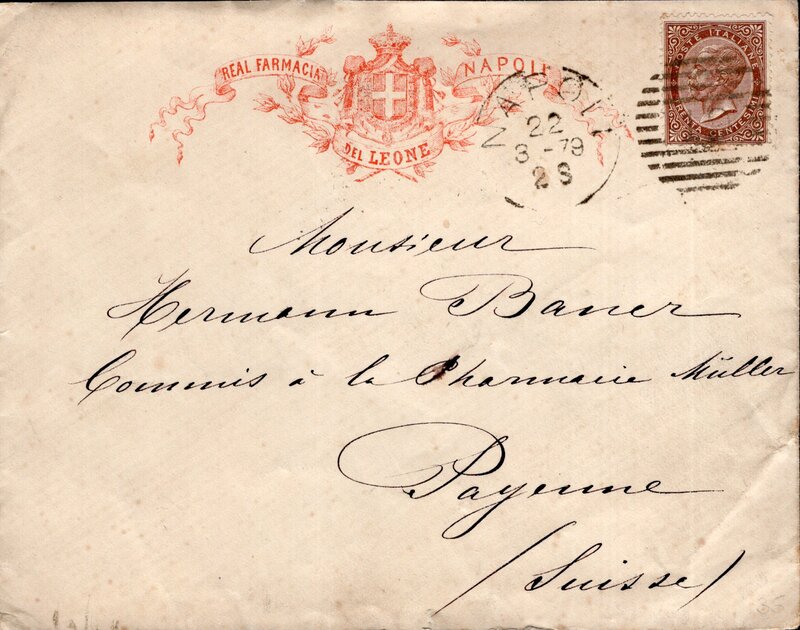 REAL FARMACIA NAPOLI
DEL LEONE
NAPOLI
22
3-79
2S
POSTE ITALIANE
TRENTA CENTESIMI
Monsieur
Hermann Baner
Commis à la Pharmacie Müller
Payerne
(Suisse)